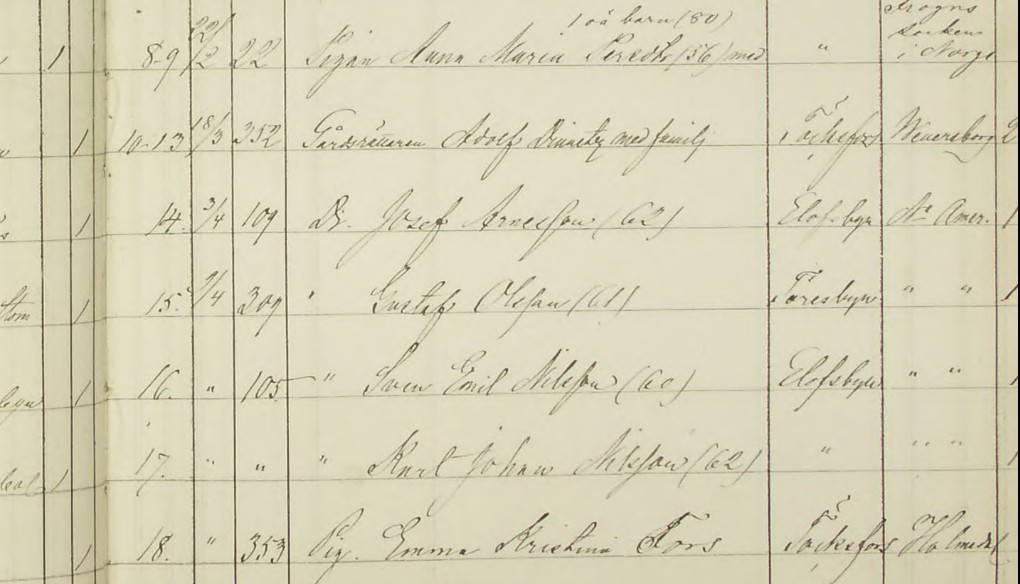 1 oä barn (80)
1 8-9 22/2 22 Pigan Anna Maria (56) med " socken i Norge
1 10-13 18/3 352 Gårdsrättaren Adolf med familj Töcksfors Wenersborg
1 14. 3/4 109 Dr. Josef Arnesson (62) Elofsbyn Na Amer. 1
1 15. 9/4 309 " Gustaf Olsson (61) Töresbyn " " 1
1 16. " 105 " Sven Emil Nilsson (60) Elofsbyn " " 1
1 17. " " " Karl Johan Nilsson (62) " " " 1
1 18. " 353 Pig. Emma Kristina Fors Töcksfors Holmedal